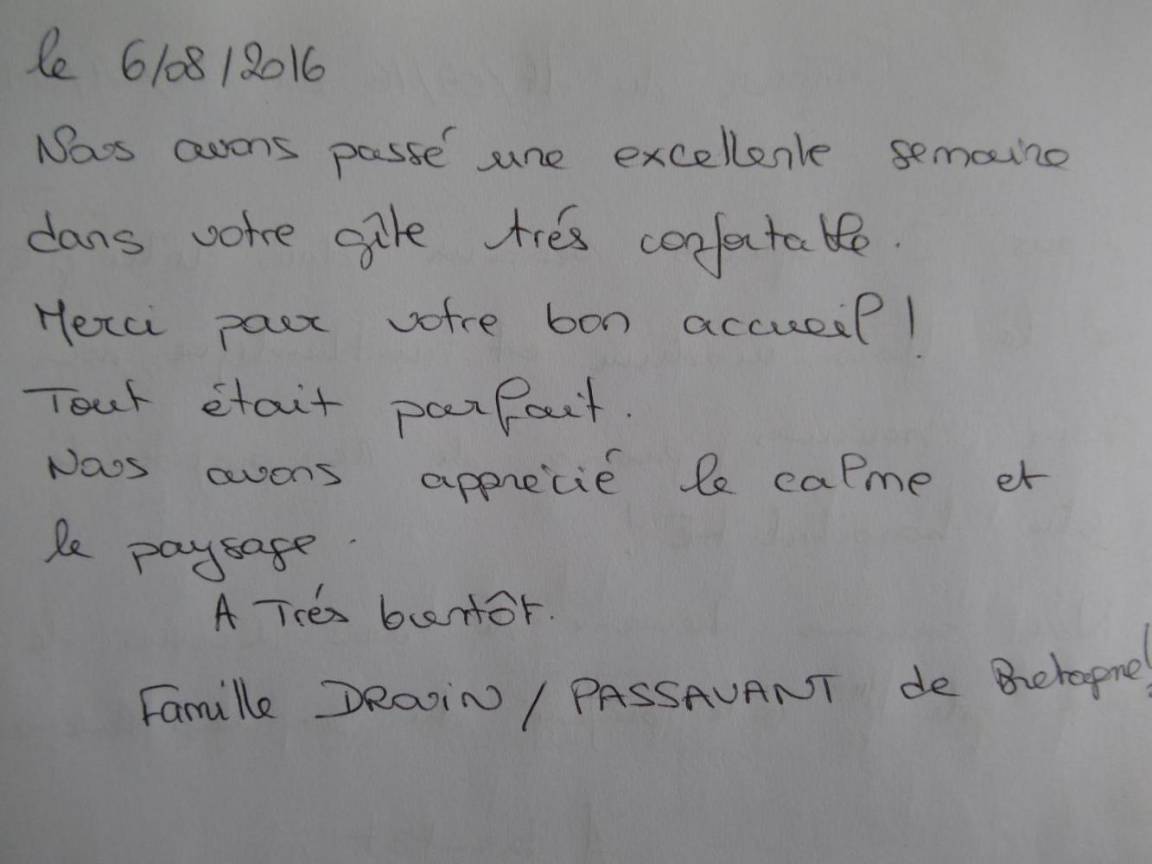 le 6/08/2016
Nous avons passé une excellente semaine
dans votre gîte trés confortable.
Merci pour votre bon accueil !
Tout était parfait.
Nous avons apprécié le calme et
le paysage.
A Trés bientôt.
Famille DROUIN / PASSAVANT de Bretagne!